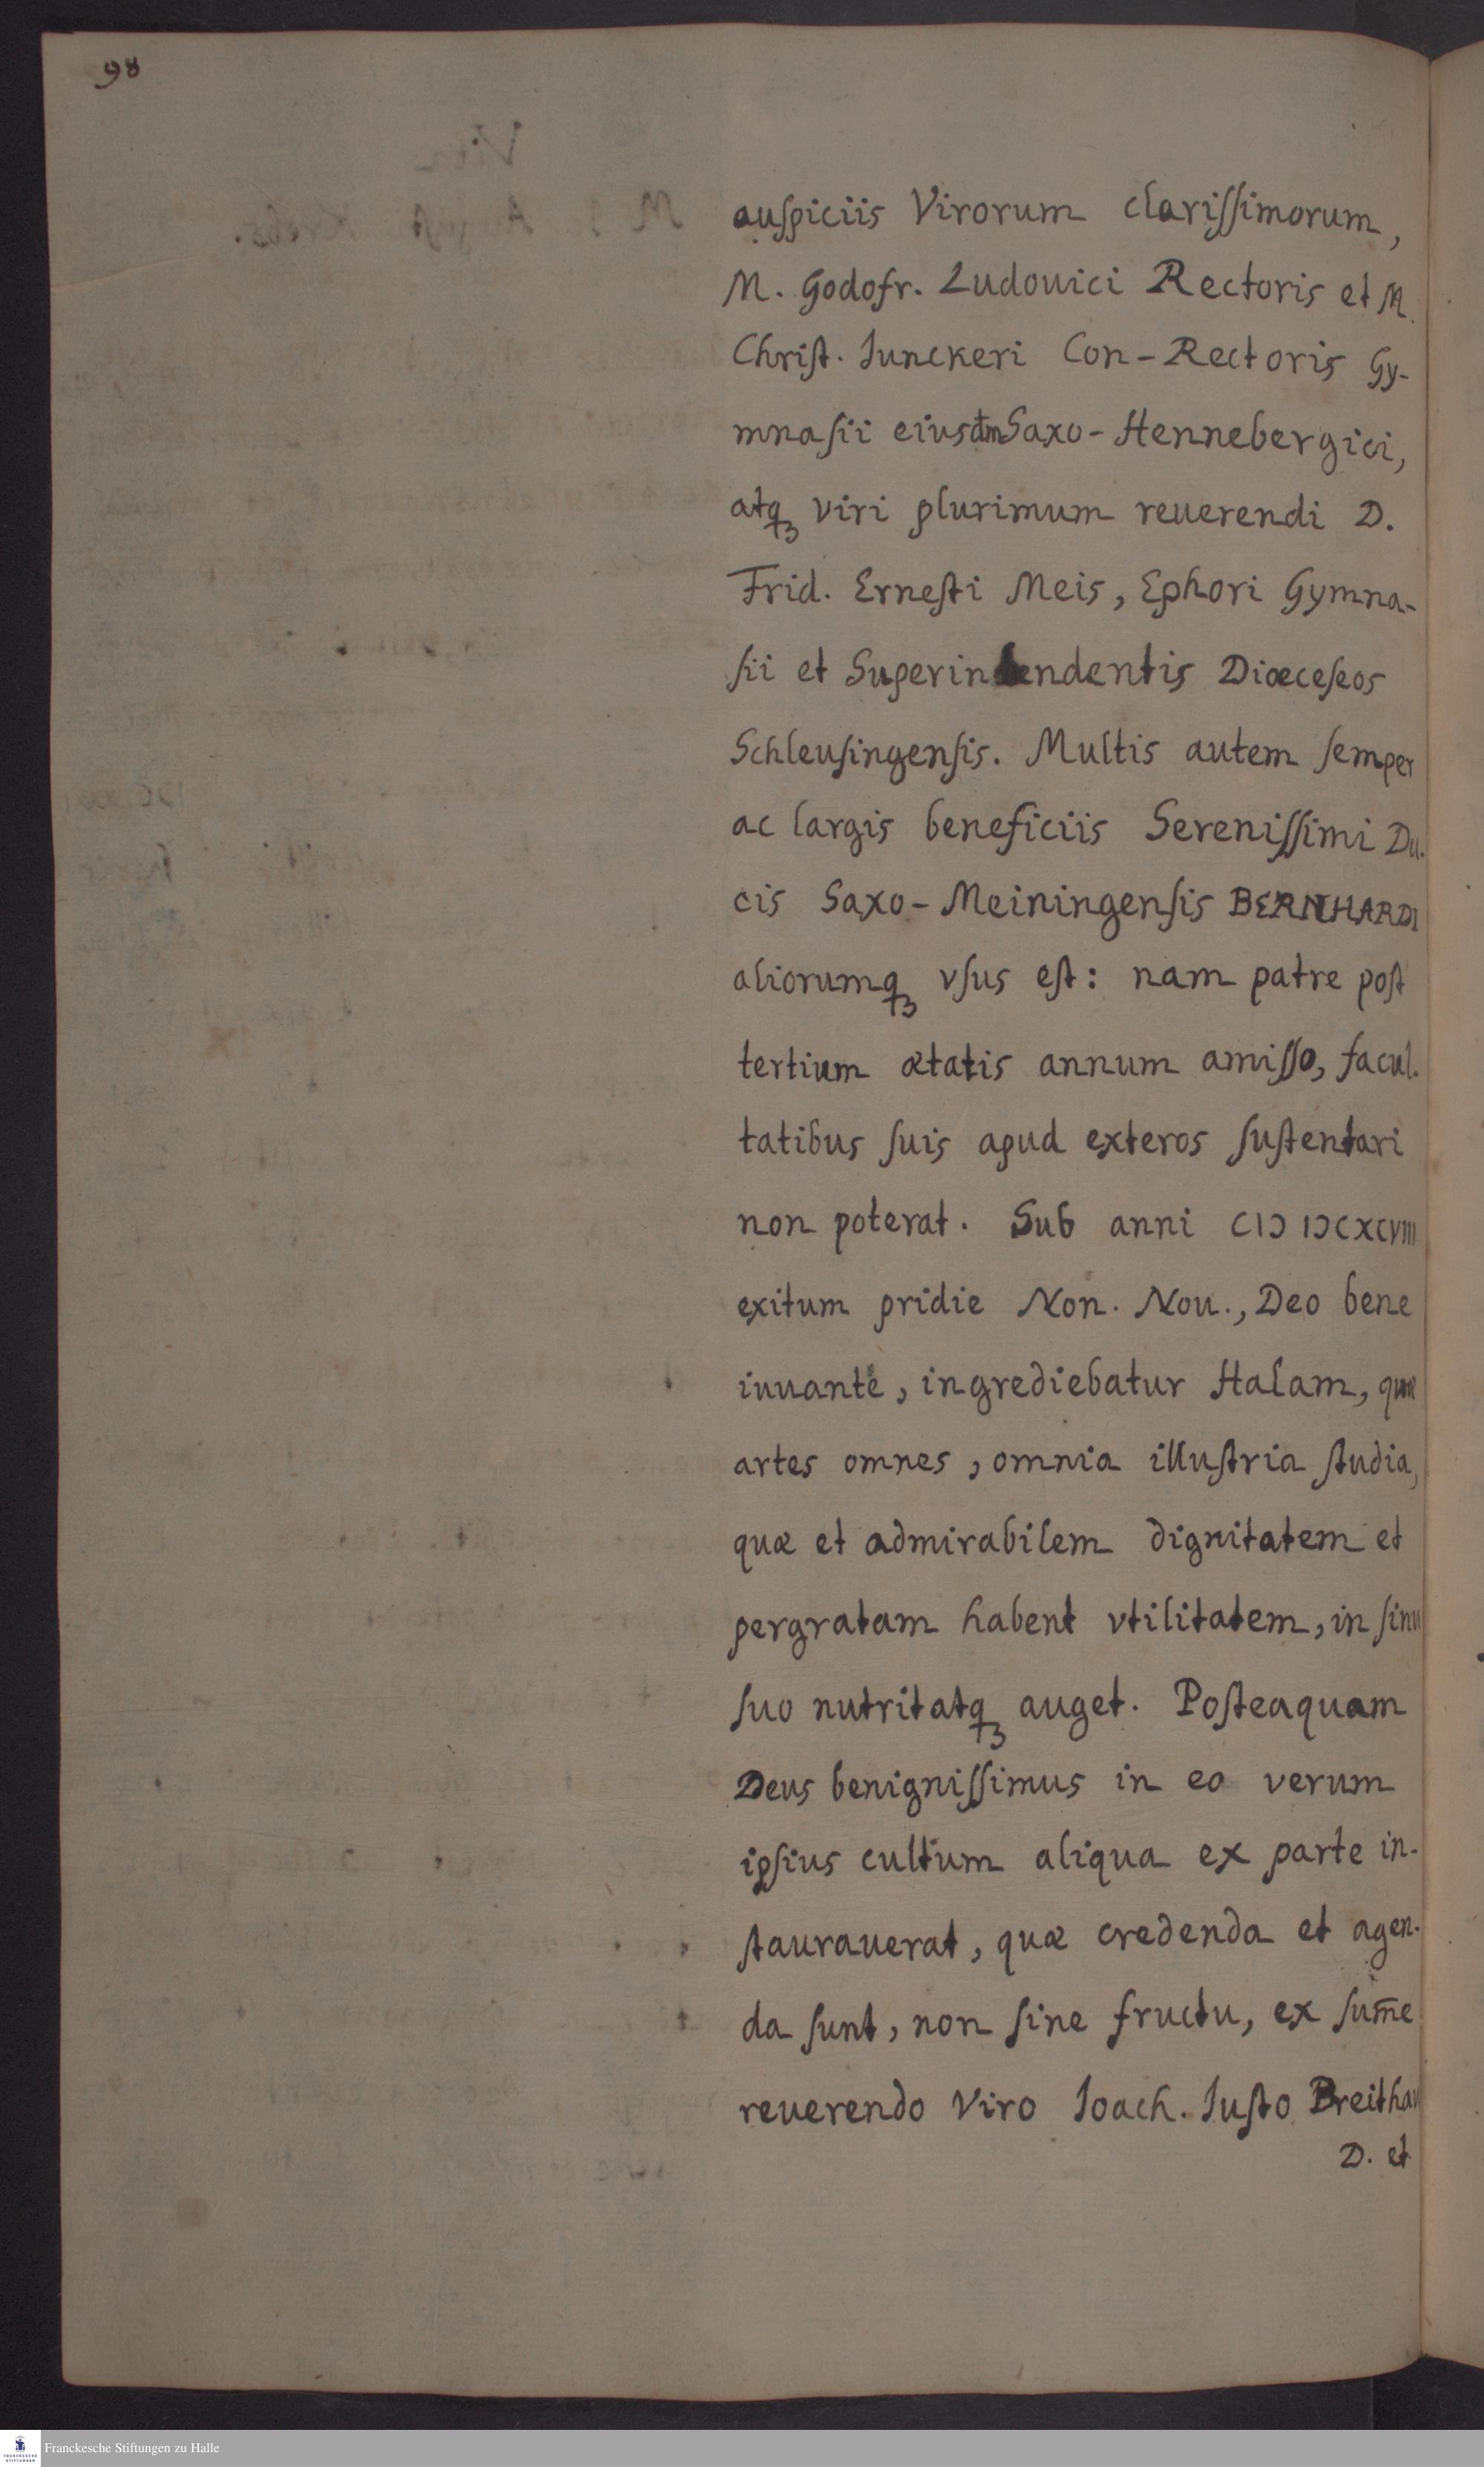 98
auſpiciis Virorum clariſſimorum,
M. Godofr. Ludouici Rectoris et M.
Chriſt. Iunckeri Con-Rectoris Gy-
mnaſii eiusdm̅ Saxo-Hennebergici,
atqꝫ viri plurimum reuerendi D.
Frid. Erneſti Meis, Ephori Gymna-
ſii et Superintendentis Diœceſeos
Schleuſingenſis. Multis autem ſemper
ac largis beneficiis Sereniſſimi Du-
cis Saxo-Meiningenſis BERNHARDI
aliorumqꝫ vſus eſt: nam patre poſt
tertium ætatis annum amiſſo, facul-
tatibus ſuis apud exteros ſuſtentari
non poterat. Sub anni CIↃ IↃCXCVIII
exitum pridie Non. Nou., Deo bene
iuuante, ingrediebatur Halam, quæ
artes omnes, omnia illuſtria ſtudia,
quæ et admirabilem dignitatem et
pergratam habent vtilitatem, in ſinu
ſuo nutrit atqꝫ auget. Poſteaquam
Deus benigniſſimus in eo verum
ipſius cultum aliqua ex parte in-
ſtaurauerat, quæ credenda et agen-
da ſunt, non ſine fructu, ex ſum̅e
reuerendo Viro Ioach. Iuſto Breithau
D. et
Franckesche Stiftungen zu Halle